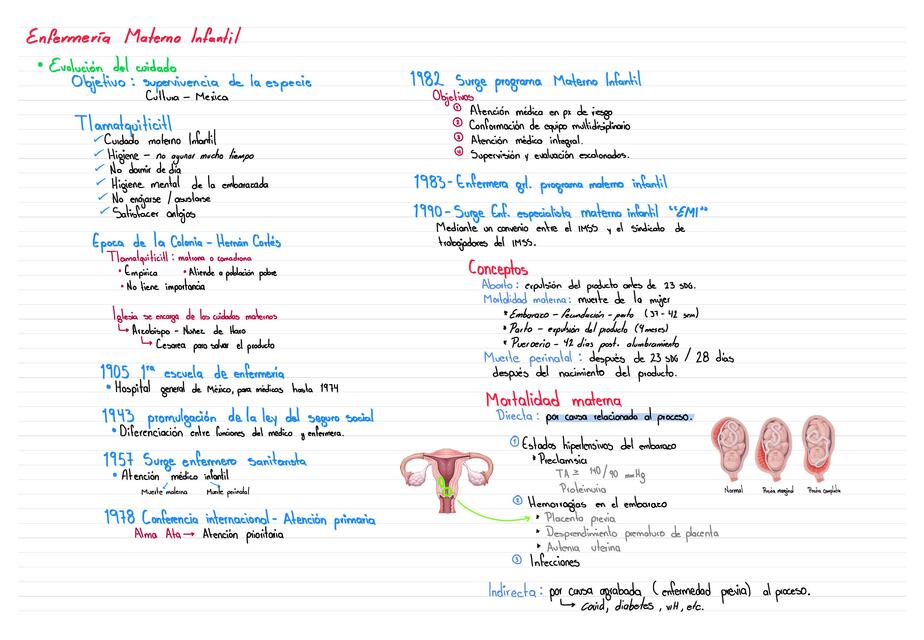 Enfermería Materno Infantil
• Evolución del cuidado
Objetivo: supervivencia de la especie
Cultura - Mexica
Tlamatquiticitl
✓ Cuidado materno Infantil
✓ Higiene - no ayunar mucho tiempo
✓ No dormir de día
✓ Higiene mental de la embarazada
✓ No enojarse / asustarse
✓ Satisfacer antojos
Epoca de la Colonia - Hernán Cortés
Tlamatquiticitl: matrona o comadrona
• Empírica • Atiende a población pobre
• No tiene importancia
Iglesia se encarga de los cuidados maternos
↳ Arzobispo - Nuñez de Haro
↳ Cesarea para salvar el producto
1905 1ra escuela de enfermería
• Hospital general de México, para médicos hasta 1974
1943 promulgación de la ley del seguro social
• Diferenciación entre funciones del médico y enfermera.
1957 Surge enfermero sanitarista
• Atención médico infantil
Muerte materna Muerte perinatal
1978 Conferencia internacional - Atención primaria
Alma Ata → Atención prioritaria
1982 Surge programa Materno Infantil
Objetivos
① Atención médica en px de riesgo
② Conformación de equipo multidisiplinario
③ Atención médico integral.
④ Supervisión y evaluación escalonados.
1983 - Enfermera grl. programa materno infantil
1990 - Surge Enf. especialista materno infantil "EMI"
Mediante un convenio entre el IMSS y el sindicato de
trabajadores del IMSS.
Conceptos
Aborto: expulsión del producto antes de 23 SDG.
Mortalidad materna: muerte de la mujer
* Embarazo - fecundación - parto (37 - 42 sem)
* Parto - expulsión del producto (9 meses)
* Puerperio - 42 días post. alumbramiento
Muerte perinatal: después de 23 SDG / 28 días
después del nacimiento del producto.
Mortalidad materna
Directa: por causa relacionada al proceso.
① Estados hipetensivos del embarazo
* Preclamsia
TA ≥ 140/90 mmHg
Proteinuria
② Hemorragias en el embarazo
* Placenta previa
* Desprendimiento prematuro de placenta
* Autenia uterina
③ Infecciones
Normal Previa marginal Previa completa
Indirecta: por causa agrabada (enfermedad previa) al proceso.
↳ Covid, diabetes, VIH, etc.